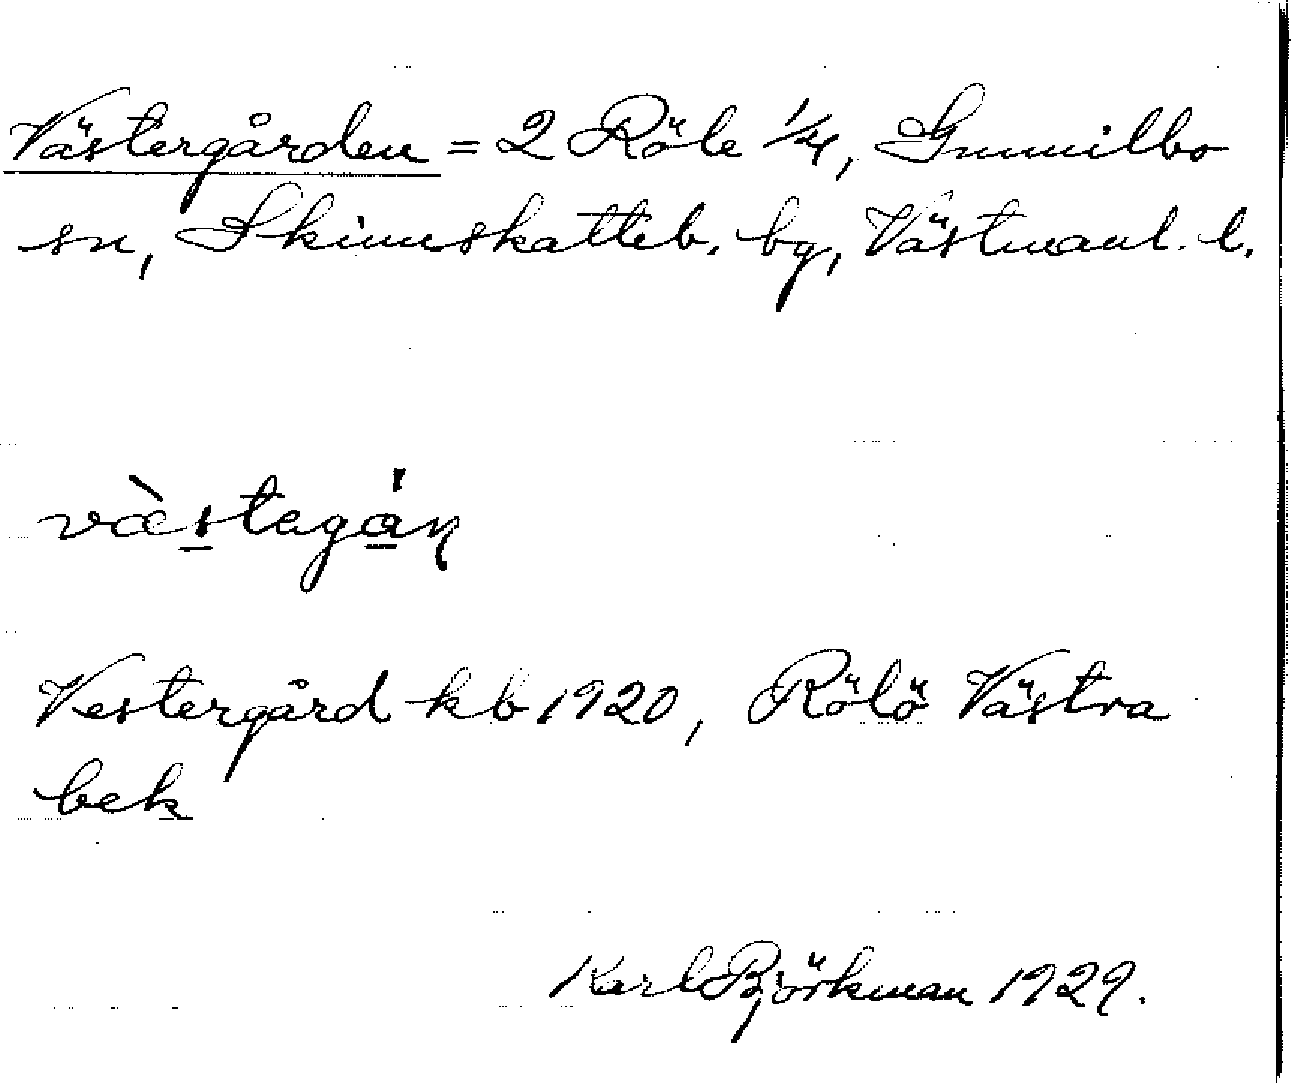 Västergården = 2 Röle 1/4, Gunnilbo
sn, Skinnskatteb. bg, Västmanl. l.
væ̀stagán
Vestergård kb 1920, Rölö Västra
bek
Karl Björkman 1929.